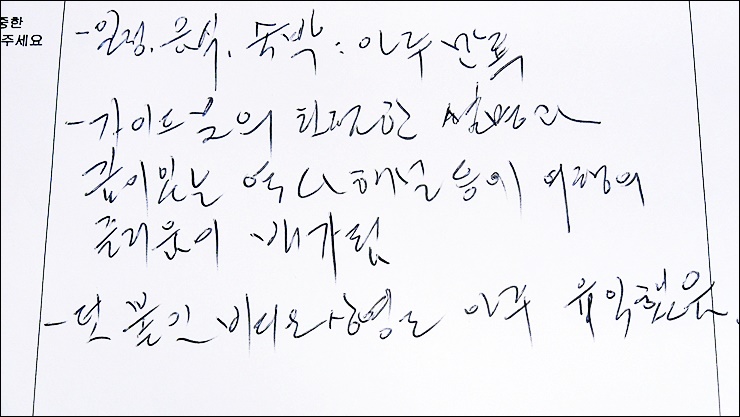 중한
주세요
-일정, 음식, 숙박 : 아주 만족
-가이드님의 친절한 설명과
깊이있는 역사해설 등이 여행의
즐거움이 배가됨
- 덧붙인 비디오상영도 아주 유익했음.